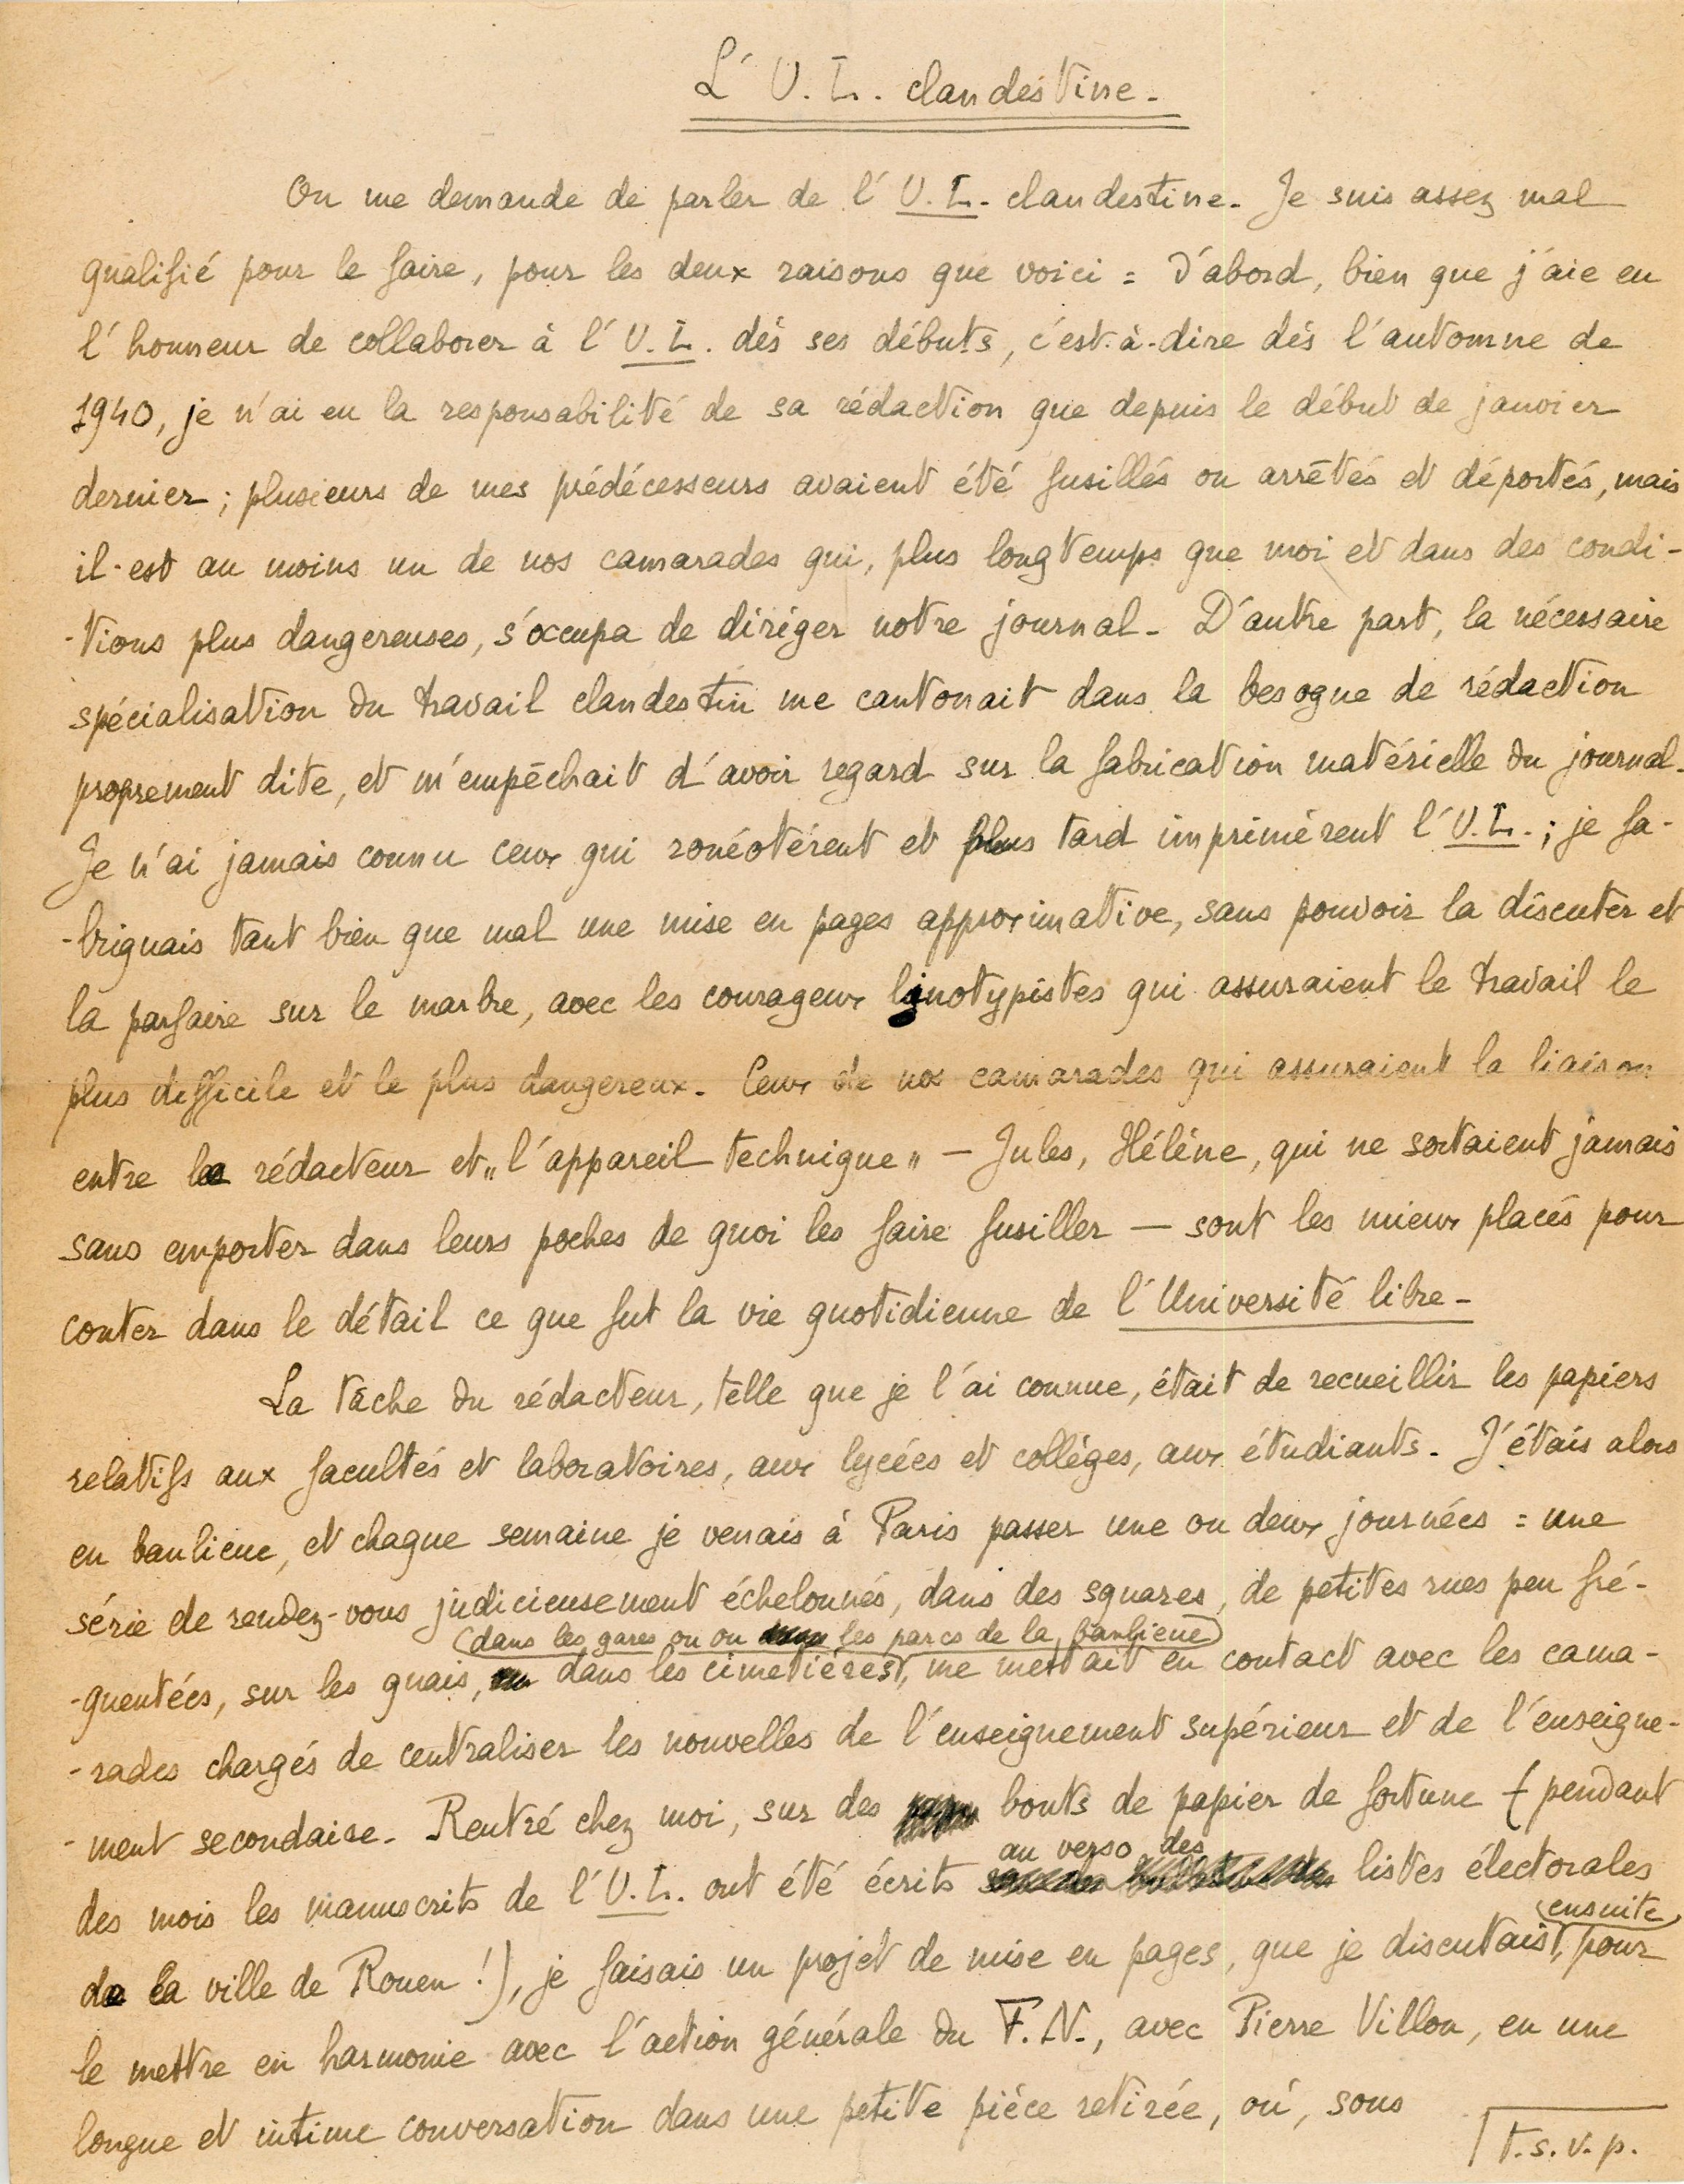 L'U.L. clandestine.
On me demande de parler de l'U.L. clandestine. Je suis assez mal
qualifié pour le faire, pour les deux raisons que voici : D'abord, bien que j'aie eu
l'honneur de collaborer à l'U.L. dès ses débuts, c'est-à-dire dès l'automne de
1940, je n'ai eu la responsabilité de sa rédaction que depuis le début de janvier
dernier ; plusieurs de mes prédécesseurs avaient été fusillés ou arrêtés et déportés, mais
il est au moins un de nos camarades qui, plus longtemps que moi et dans des condi-
-tions plus dangereuses, s'occupa de diriger notre journal. D'autre part, la nécessaire
spécialisation du travail clandestin me cantonait dans la besogne de rédaction
proprement dite, et m'empêchait d'avoir regard sur la fabrication matérielle du journal.
Je n'ai jamais connu ceux qui ronéotèrent et plus tard imprimèrent l'U.L. ; je fa-
-briquais tant bien que mal une mise en pages approximative, sans pouvoir la discuter et
la parfaire sur le marbre, avec les courageux linotypistes qui assuraient le travail le
plus difficile et le plus dangereux. Ceux de nos camarades qui assuraient la liaison
entre le rédacteur et „l'appareil technique" — Jules, Hélène, qui ne sortaient jamais
sans emporter dans leurs poches de quoi les faire fusiller — sont les mieux placés pour
conter dans le détail ce que fut la vie quotidienne de l'Université libre.
La tâche du rédacteur, telle que je l'ai connue, était de recueillir les papiers
relatifs aux facultés et laboratoires, aux lycées et collèges, aux étudiants. J'étais alors
en banlieue, et chaque semaine je venais à Paris passer une ou deux journées : une
série de rendez-vous judicieusement échelonnés, dans des squares, de petites rues peu fré-
(dans les gares ou ou les parcs de la banlieue)
-quentées, sur les quais, dans les cimetières, me mettait en contact avec les cama-
-rades chargés de centraliser les nouvelles de l'enseignement supérieur et de l'enseigne-
-ment secondaire. Rentré chez moi, sur des bouts de papier de fortune (pendant
au verso des
des mois les manuscrits de l'U.L. ont été écrits listes électorales
ensuite
de la ville de Rouen !), je faisais un projet de mise en pages, que je discutais, pour
le mettre en harmonie avec l'action générale du F.N., avec Pierre Villon, en une
longue et intime conversation dans une petite pièce retirée, où, sous
T.s.v.p.